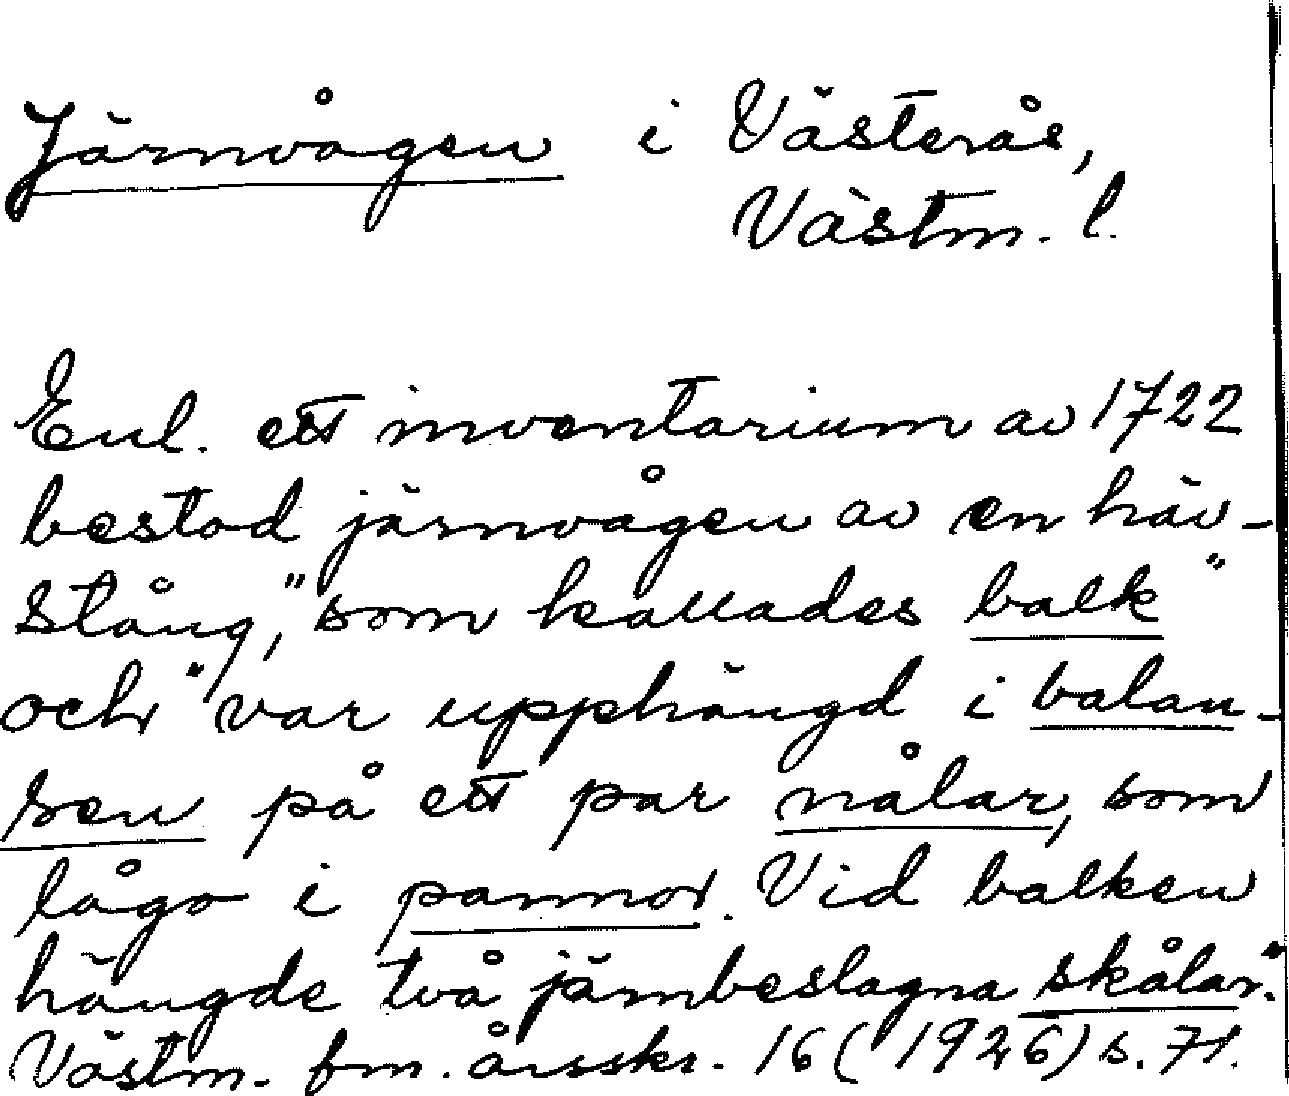 Järnvågen i Västerås,
Västm. l.
Enl. ett inventarium av 1722
bestod järnvågen av en häv-
stång, "som kallades balk"
och "var upphängd i balan-
sen på ett par nålar, som
lågo i pannor. Vid balken
hängde två järnbeslagna skålar".
Västm. fm. årsskr. 16 (1926) s. 71.